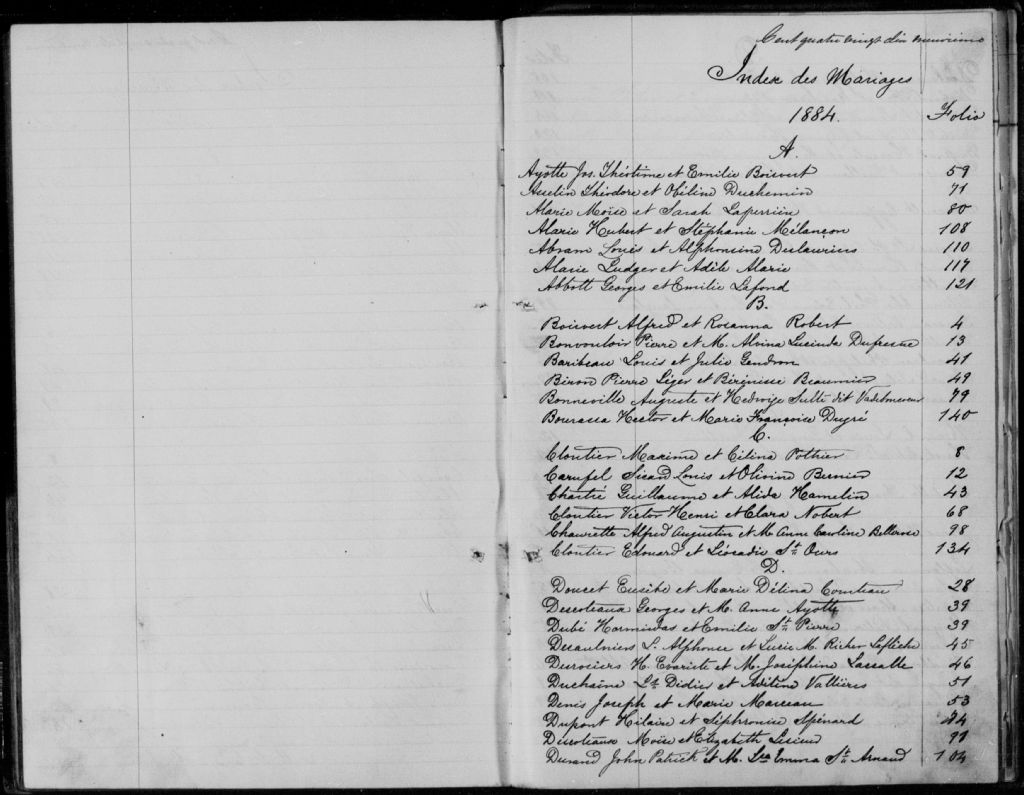 Cent quatre vingt dix neuvième
Index des Mariages
1884. Folio
A.
Ayotte Jos. Théotime et Emilie Boisvert 59
Auclin Théodore et Obéline Duchemin 71
Alarie Moïse et Sarah Laperrière 80
Alarie Hubert et Stéphanie Mélançon 108
Abram Louis et Alphonsine Deslauriers 110
Alarie Ludger et Adèle Alarie 117
Abbott Georges et Emilie Lafond 121
B.
Boisvert Alfred et Rosanna Robert 4
Bonvouloir Pierre et M. Alvina Lucinda Dufresne 13
Baribeau Louis et Julie Gendron 41
Biron Pierre Léger et Bérénisse Beaumier 49
Bonneville Auguste et Hedwige Sulté dit Vadeboncoeur 79
Bourassa Hector et Marie Françoise Dugré 140
C.
Cloutier Maxime et Célina Pothier 8
Carufel Sicard Louis et Olivine Bernier 12
Chartré Guillaume et Alida Hamelin 43
Cloutier Victor Henri et Clara Nobert 68
Chaurette Alfred Augustin et M. Anne Caroline Bellerose 98
Cloutier Edouard et Léocadie St. Ours 134
D.
Doucet Eusèbe et Marie Délina Comteau 28
Descoteaux Georges et M. Anne Ayotte 39
Dubé Hormisdas et Emilie St. Pierre 39
Desaulniers L. Alphonse et Lucie M. Richer Laflèche 45
Desrosiers H. Evariste et M. Joséphine Lassalle 46
Duchaîne Ls. Didier et Avéline Vallières 51
Denis Joseph et Marie Marceau 53
Dupont Hilaire et Séphronie Spénard 74
Descoteaux Moïse et Elizabeth Lesieur 91
Durand John Patrick et M. Ls. Emma St. Arnaud 104